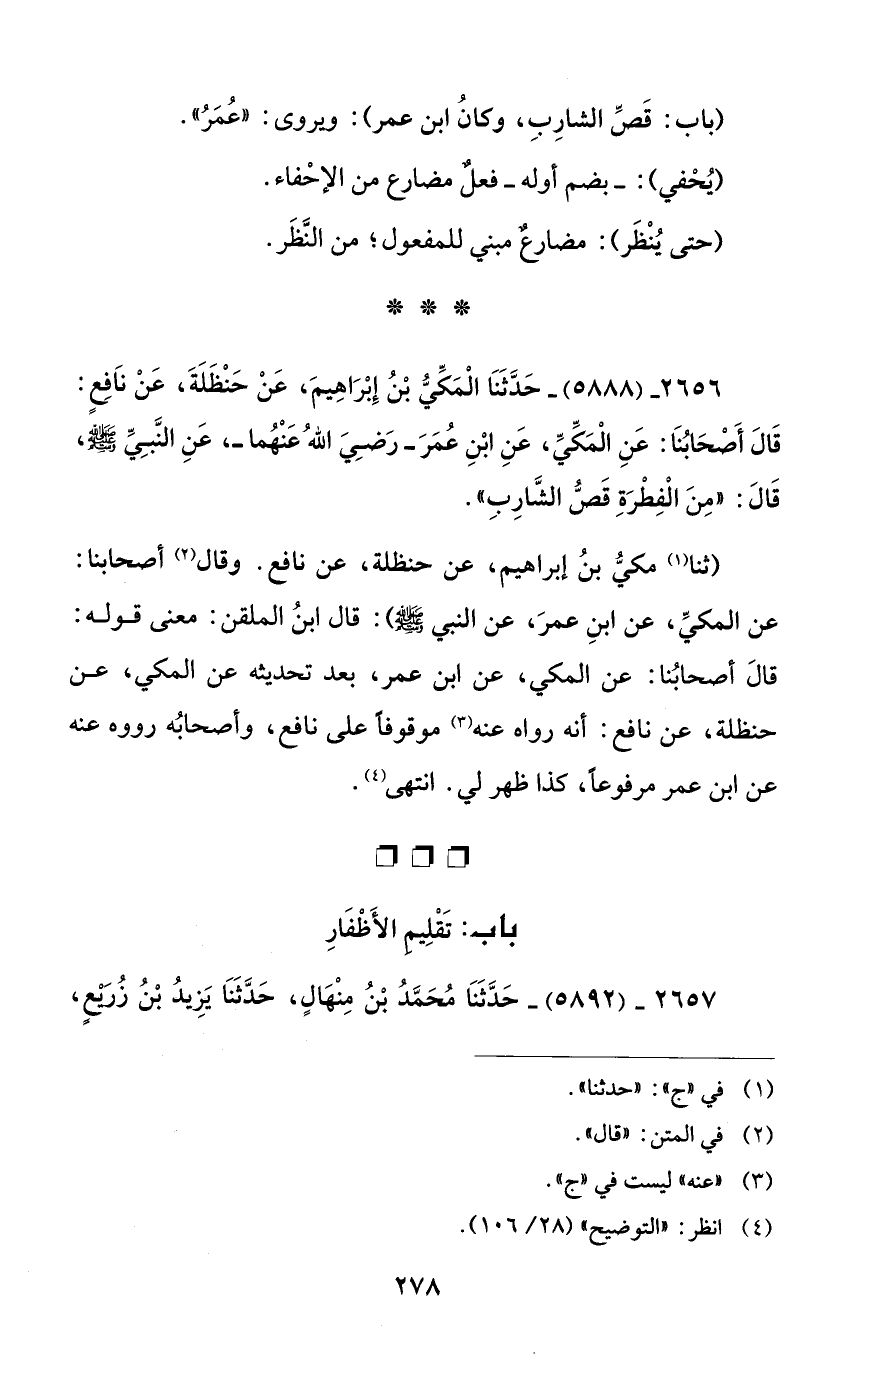 (باب: قَصِّ الشارِبِ، وكانُ ابن عمر): ويروى: «عُمَرُ».
(يُحْفي): ـ بضم أوله ـ فعلٌ مضارع من الإحْفاء.
(حتى يُنْظَر): مضارعٌ مبني للمفعول؛ من النَّظَر.
* * *
٢٦٥٦ـ (٥٨٨٨) ـ حَدَّثَنَا الْمَكِّيُّ بْنُ إِبْرَاهِيمَ، عَنْ حَنْظَلَةَ، عَنْ نَافِعٍ:
قَالَ أَصْحَابُنَا: عَنِ الْمَكِّيِّ، عَنِ ابْنِ عُمَرَ ـ رَضِيَ اللهُ عَنْهُما ـ، عَنِ النَّبِيِّ ﷺ،
قَالَ: «مِنَ الْفِطْرَةِ قَصُّ الشَّارِبِ».
(ثنا(١) مكيُّ بنُ إبراهيم، عن حنظلة، عن نافع. وقال(٢) أصحابنا:
عن المكيِّ، عن ابنِ عمرَ، عن النبي ﷺ): قال ابنُ الملقن: معنى قوله:
قالَ أصحابُنا: عن المكي، عن ابن عمر، بعد تحديثه عن المكي، عن
حنظلة، عن نافع: أنه رواه عنه(٣) موقوفاً على نافع، وأصحابُه رووه عنه
عن ابن عمر مرفوعاً، كذا ظهر لي. انتهى(٤).
❒ ❒ ❒
باب: تَقْلِيمِ الأَظْفَارِ
٢٦٥٧ ـ (٥٨٩٢) ـ حَدَّثَنَا مُحَمَّدُ بْنُ مِنْهَالٍ، حَدَّثَنَا يَزِيدُ بْنُ زُرَيْعٍ،
(١) في «ج»: «حدثنا».
(٢) في المتن: «قال».
(٣) «عنه» ليست في «ج».
(٤) انظر: «التوضيح» (٢٨/ ١٠٦).
٢٧٨